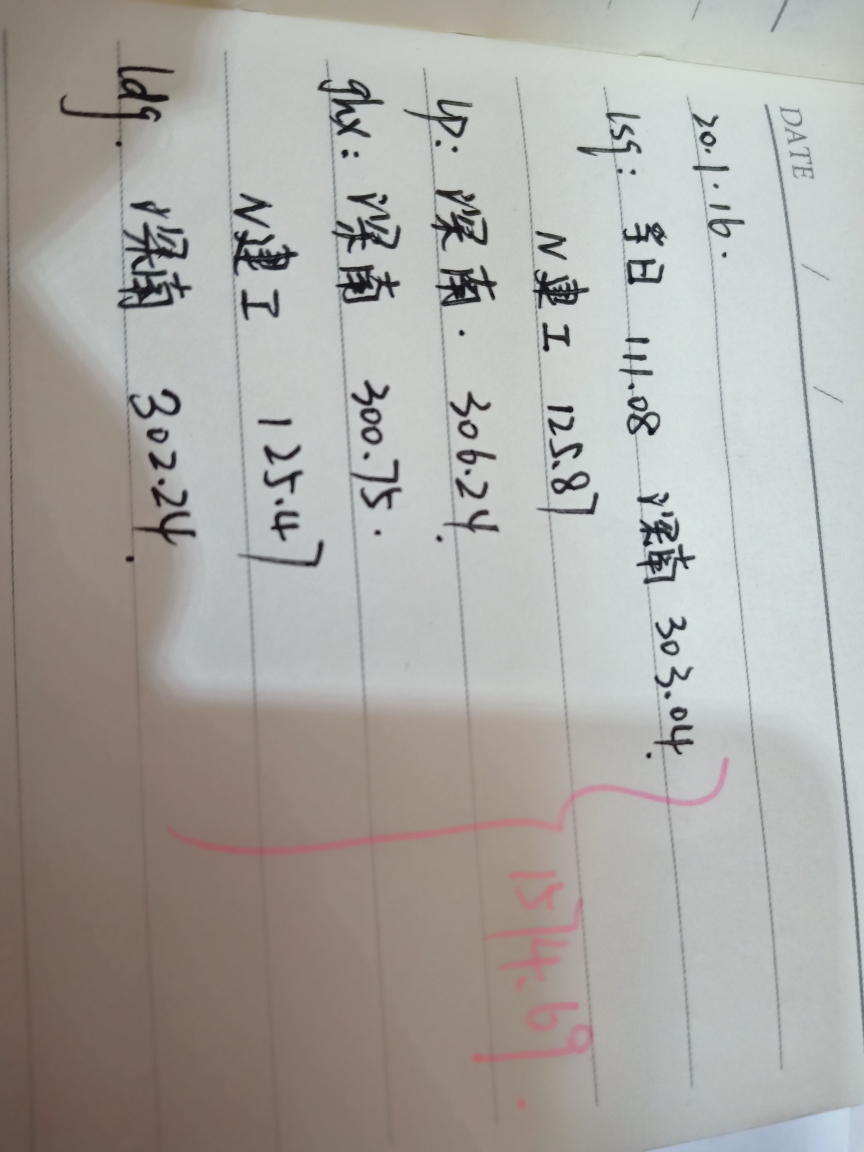 DATE / /
20.1.16.
lsq: 当日 111.08 深南 303.04.
N建工 125.87
lp: 深南. 306.24.
ghx: 深南 300.75.
N建工 125.47
ldq. 深南 302.24.
1574.69.